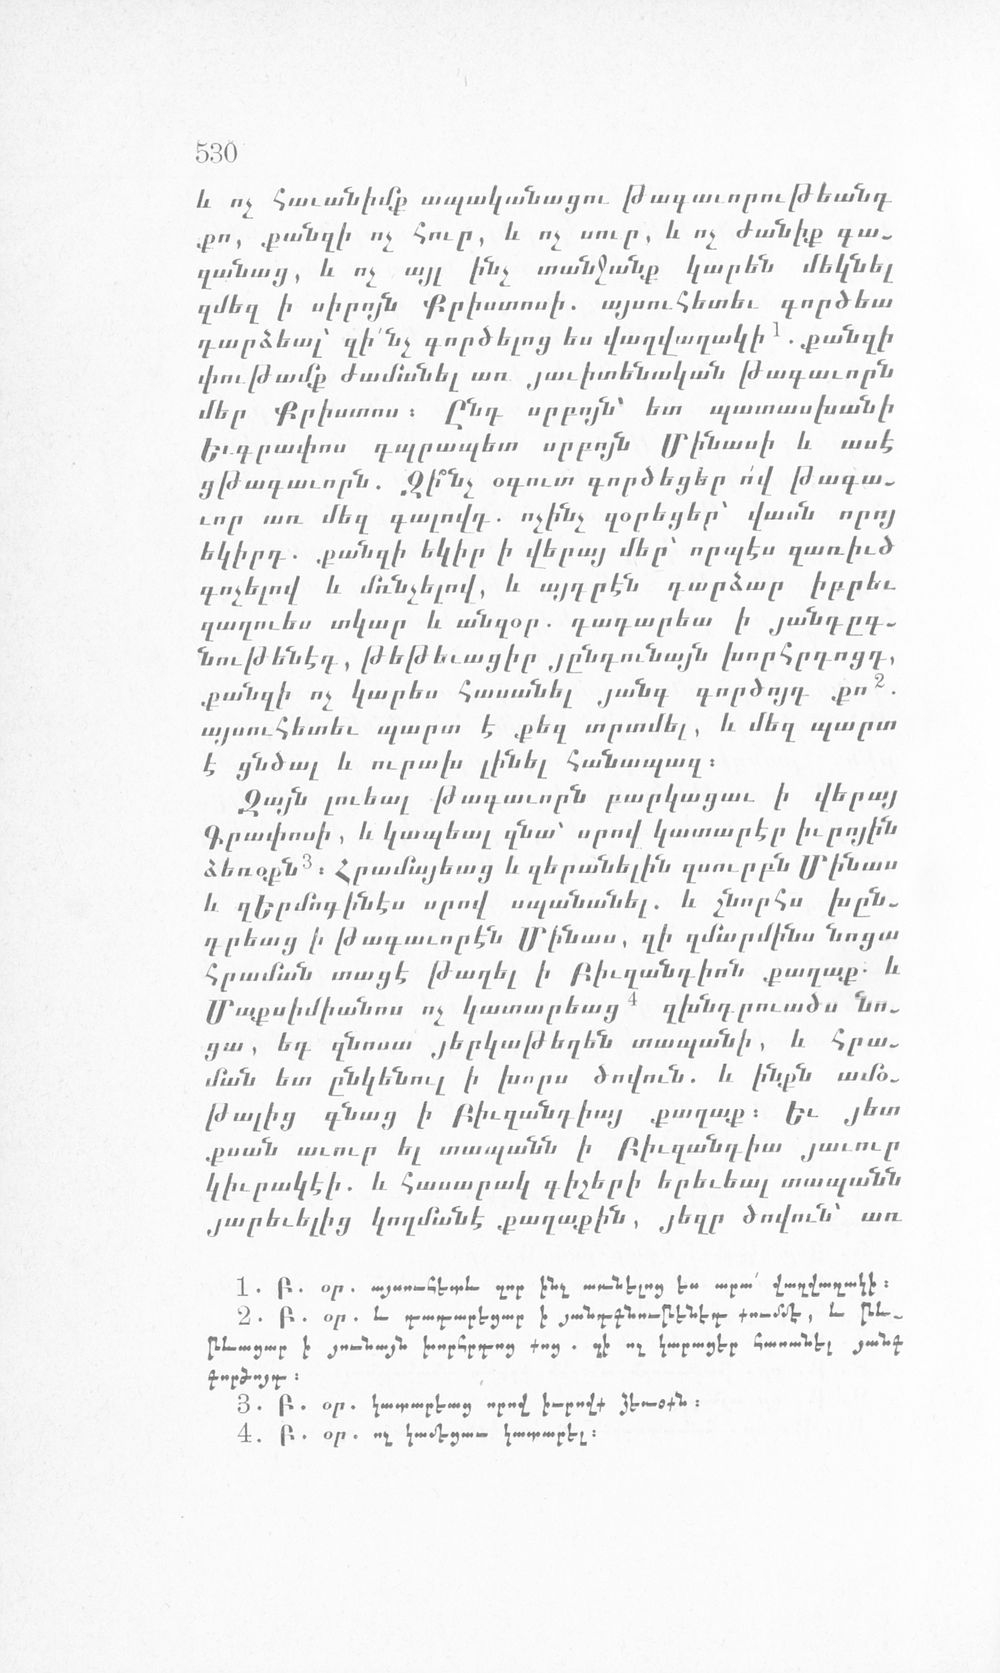 530
և ոչ հաւանիմք ապականացու թագաւորութեանդ
քո, քանզի ոչ հուր, և ոչ սուր, և ոչ ժանիք գա-
զանաց, և ոչ այլ ինչ տանջանք կարեն մեկնել
զմեզ ի սիրոյն Քրիստոսի. այսուհետեւ գործեա
դարձեալ՝ զի՛նչ գործելոց ես վաղվաղակի¹. քանզի
փութամք ժամանել առ յաւիտենական թագաւորն
մեր Քրիստոս։ Ընդ սրբոյն՝ ետ պատասխանի
Եւգրափոս դպրապետ սրբոյն Մինասի և ասէ
ցթագաւորն. Զի՞նչ օգուտ գործեցեր ո՛վ թագա-
ւոր առ մեզ գալովդ. ոչինչ զօրեցեր՝ վասն որոյ
եկիրդ. քանզի եկիր ի վերայ մեր՝ որպէս զառիւծ
գոչելով և մռնչելով, և այդրէն դարձար իբրեւ
զաղուես տկար և անզօր. դադարեա ի յանդըգ-
նութենէդ, թեթեւացիր յընդունայն խորհրդոցդ,
քանզի ոչ կարես հասանել յանգ գործոյդ քո².
այսուհետեւ պարտ է քեզ տրտմել, և մեզ պարտ
է ցնծալ և ուրախ լինել հանապազ։
Զայն լուեալ թագաւորն բարկացաւ ի վերայ
Գրափոսի, և կապեալ զնա՝ սրով կատարէր իւրոյին
ձեռօքն³։ Հրամայեաց և զերանելին զսուրբն Մինաս
և զԵրմոգինէս սրով սպանանել. և շնորհս խըն-
դրեաց ի թագաւորէն Մինաս, զի զմարմինս նոցա
հրաման տացէ թաղել ի Բիւզանդիոն քաղաք. և
Մաքսիմիանոս ոչ կատարեաց⁴ զխնդրուածս նո-
ցա, եդ զնոսա յերկաթեղէն տապանի, և հրա-
ման ետ ընկենուլ ի խորս ծովուն. և ինքն ամօ-
թալից գնաց ի Բիւզանդիայ քաղաք։ Եւ յետ
քսան աւուր ել տապանն ի Բիւզանդիա յաւուր
կիւրակէի. և հասարակ գիշերի երեւեալ տապանն
յարեւելից կողմանէ քաղաքին, յեզր ծովուն՝ առ
1. Բ. օր. այսուհետև զոր ինչ առնելոց ես արա՛ վաղվաղակի։
2. Բ. օր. և դադարեցար ի յանդգնութենէդ քումմէ, և թեւ-
թևացար ի յունայն խորհրդոց քոց. զի ոչ կարացեր հասանել յանգ
գործոյդ։
3. Բ. օր. կատարեաց սրով իւրովք ձեռօքն։
4. Բ. օր. ոչ կամեցաւ կատարել։